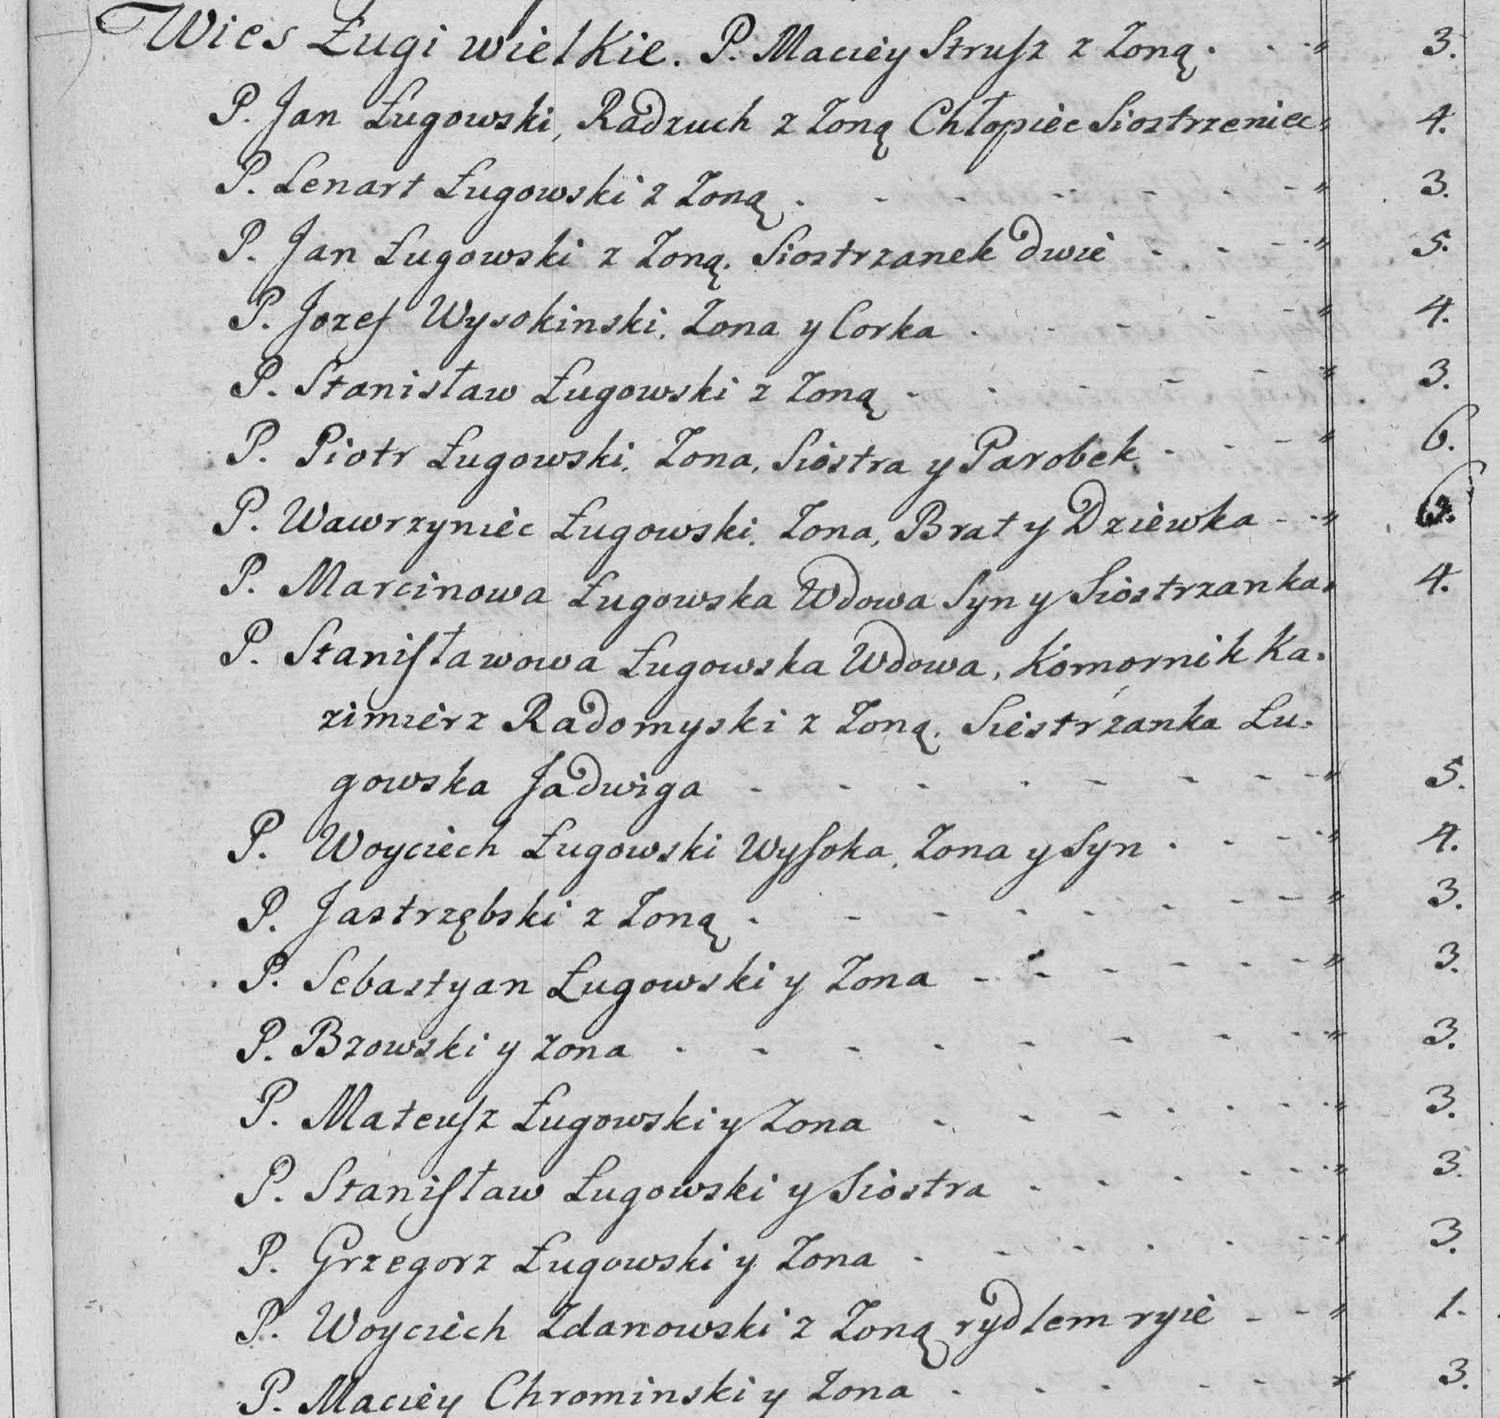 Wies Ługi wielkie. P. Maciey Strusz z Zoną. 3.
P. Jan Ługowski, Radzuch z Zoną Chłopiec Siostrzeniec, 4.
P. Lenart Ługowski z Zoną. 3.
P. Jan Ługowski z Zoną. Siostrzanek dwie 5.
P. Jozef Wysokinski, Zona y Corka 4.
P. Stanisław Ługowski z Zoną 3.
P. Piotr Ługowski, Zona, Siostra y Parobek 6.
P. Wawrzyniec Ługowski, Zona, Brat y Dziewka
P. Marcinowa Ługowska Wdowa Syn y Siostrzanka. 4.
P. Stanisławowa Ługowska Wdowa, Komornik Ka-
zimierz Radomyski z Zoną, Siestrzanka Łu-
gowska Jadwiga 5.
P. Woyciech Ługowski Wysoka, Zona y Syn 4.
P. Jastrzębski z Zoną 3.
P. Sebastyan Ługowski y Zona 3.
P. Bzowski y zona 3.
P. Mateusz Ługowski y Zona 3.
P. Stanisław Ługowski y Siostra 3.
P. Grzegorz Ługowski y Zona 3.
P. Woyciech Zdanowski z Zoną rydlem ryie 1.
P. Maciey Chrominski y Zona 3.